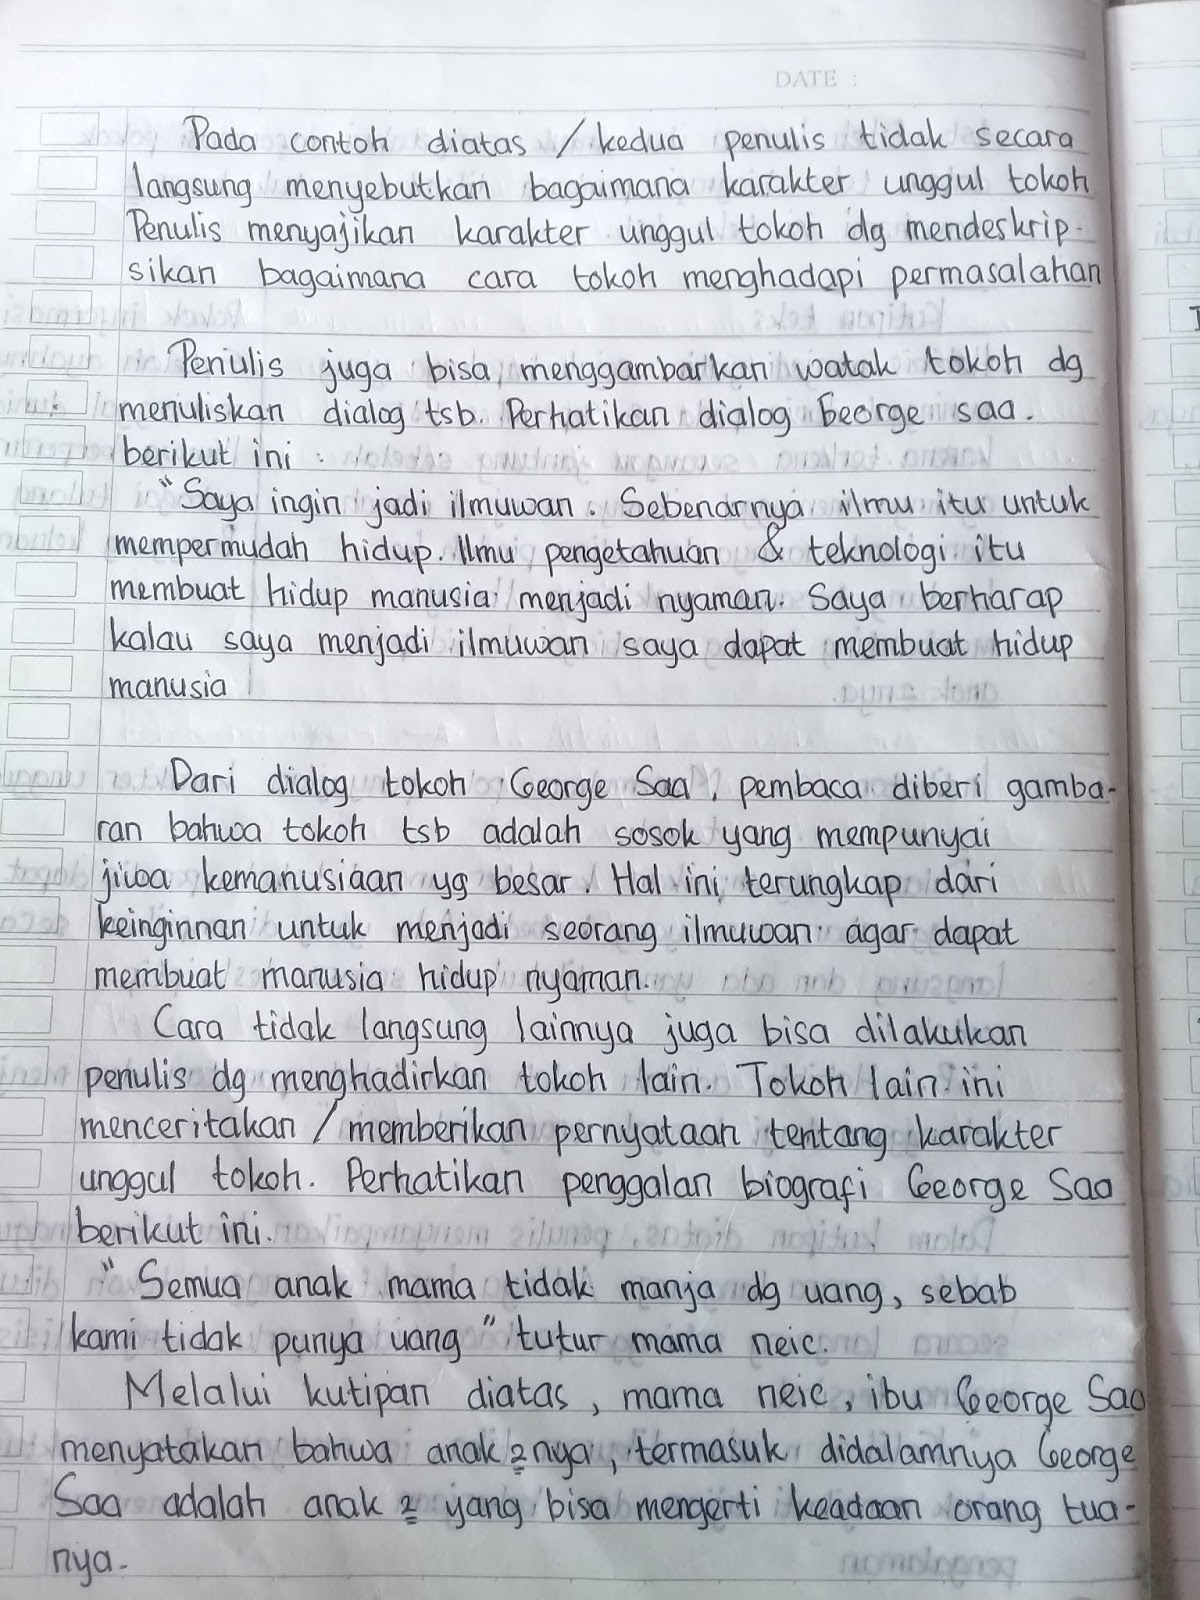 DATE :
Pada contoh diatas / kedua penulis tidak secara
langsung menyebutkan bagaimana karakter unggul tokoh
Penulis menyajikan karakter unggul tokoh dg mendeskrip-
sikan bagaimana cara tokoh menghadapi permasalahan
Penulis juga bisa menggambarkan watak tokoh dg
menuliskan dialog tsb. Perhatikan dialog George saa.
berikut ini :
"Saya ingin jadi ilmuwan. Sebenarnya ilmu itu untuk
mempermudah hidup. Ilmu pengetahuan & teknologi itu
membuat hidup manusia menjadi nyaman. Saya berharap
kalau saya menjadi ilmuwan saya dapat membuat hidup
manusia
Dari dialog tokoh George Saa, pembaca diberi gamba-
ran bahwa tokoh tsb adalah sosok yang mempunyai
jiwa kemanusiaan yg besar. Hal ini terungkap dari
keinginnan untuk menjadi seorang ilmuwan agar dapat
membuat manusia hidup nyaman.
Cara tidak langsung lainnya juga bisa dilakukan
penulis dg menghadirkan tokoh lain. Tokoh lain ini
menceritakan / memberikan pernyataan tentang karakter
unggul tokoh. Perhatikan penggalan biografi George Saa
berikut ini.
"Semua anak mama tidak manja dg uang, sebab
kami tidak punya uang" tutur mama neic.
Melalui kutipan diatas, mama neic, ibu George Saa
menyatakan bahwa anak 2nya, termasuk didalamnya George
Saa adalah anak 2 yang bisa mengerti keadaan orang tua-
nya.